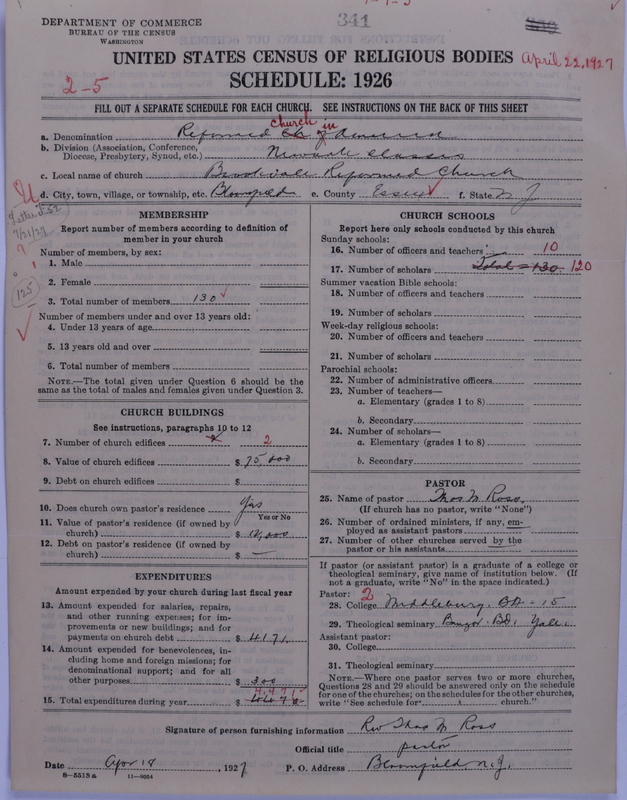 341
DEPARTMENT OF COMMERCE
BUREAU OF THE CENSUS
WASHINGTON
UNITED STATES CENSUS OF RELIGIOUS BODIES
April 22, 1927
SCHEDULE: 1926
2-5
FILL OUT A SEPARATE SCHEDULE FOR EACH CHURCH. SEE INSTRUCTIONS ON THE BACK OF THIS SHEET
church in
a. Denomination Reformed Ch of America
b. Division (Association, Conference, Diocese, Presbytery, Synod, etc.) Newark Classis
c. Local name of church Brookdale Reformed Church
d. City, town, village, or township, etc. Bloomfield e. County Essex f. State N J
MEMBERSHIP
Report number of members according to definition of
member in your church
Number of members, by sex:
1. Male
2. Female
3. Total number of members 130
125
Number of members under and over 13 years old:
4. Under 13 years of age
5. 13 years old and over
6. Total number of members
NOTE.—The total given under Question 6 should be the
same as the total of males and females given under Question 3.
CHURCH BUILDINGS
See instructions, paragraphs 10 to 12
7. Number of church edifices 2
8. Value of church edifices $ 75,000
9. Debt on church edifices $
10. Does church own pastor's residence Yes
Yes or No
11. Value of pastor's residence (if owned by
church) $ 12,000
12. Debt on pastor's residence (if owned by
church) $ —
EXPENDITURES
Amount expended by your church during last fiscal year
13. Amount expended for salaries, repairs,
and other running expenses; for im-
provements or new buildings; and for
payments on church debt $ 4171
14. Amount expended for benevolences, in-
cluding home and foreign missions; for
denominational support; and for all
other purposes $ 300
4471
15. Total expenditures during year $
CHURCH SCHOOLS
Report here only schools conducted by this church
Sunday schools:
16. Number of officers and teachers 10
17. Number of scholars Total = 130 120
Summer vacation Bible schools:
18. Number of officers and teachers
19. Number of scholars
Week-day religious schools:
20. Number of officers and teachers
21. Number of scholars
Parochial schools:
22. Number of administrative officers
23. Number of teachers—
a. Elementary (grades 1 to 8)
b. Secondary
24. Number of scholars—
a. Elementary (grades 1 to 8)
b. Secondary
PASTOR
25. Name of pastor Thos M. Ross
(If church has no pastor, write "None")
26. Number of ordained ministers, if any, em-
ployed as assistant pastors
27. Number of other churches served by the
pastor or his assistants
If pastor (or assistant pastor) is a graduate of a college or
theological seminary, give name of institution below. (If
not a graduate, write "No" in the space indicated.)
Pastor: 2
28. College Middlebury BA - 15
29. Theological seminary Bangor BD. Yale
Assistant pastor:
30. College
31. Theological seminary
NOTE.—Where one pastor serves two or more churches,
Questions 28 and 29 should be answered only on the schedule
for one of the churches; on the schedules for the other churches,
write "See schedule for church."
Signature of person furnishing information Rev Thos M Ross
Official title pastor
Date Apr 18, 1927 P. O. Address Bloomfield N.J.
8—5513a 11—9064